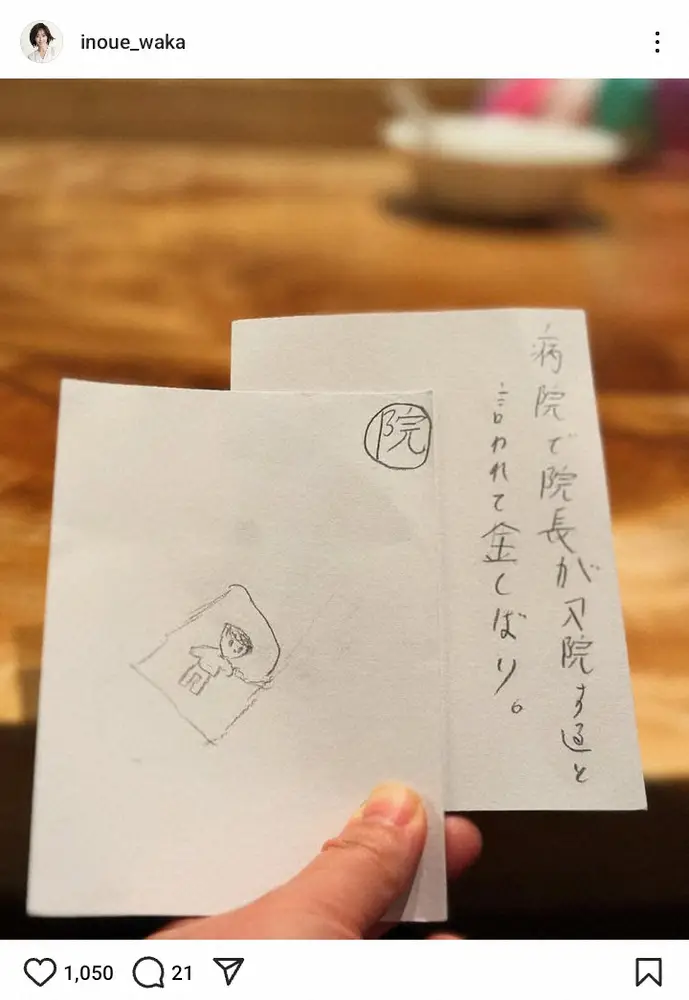 inoue_waka
院
病院で院長が入院す と
言われて金しばり。
1,050
21